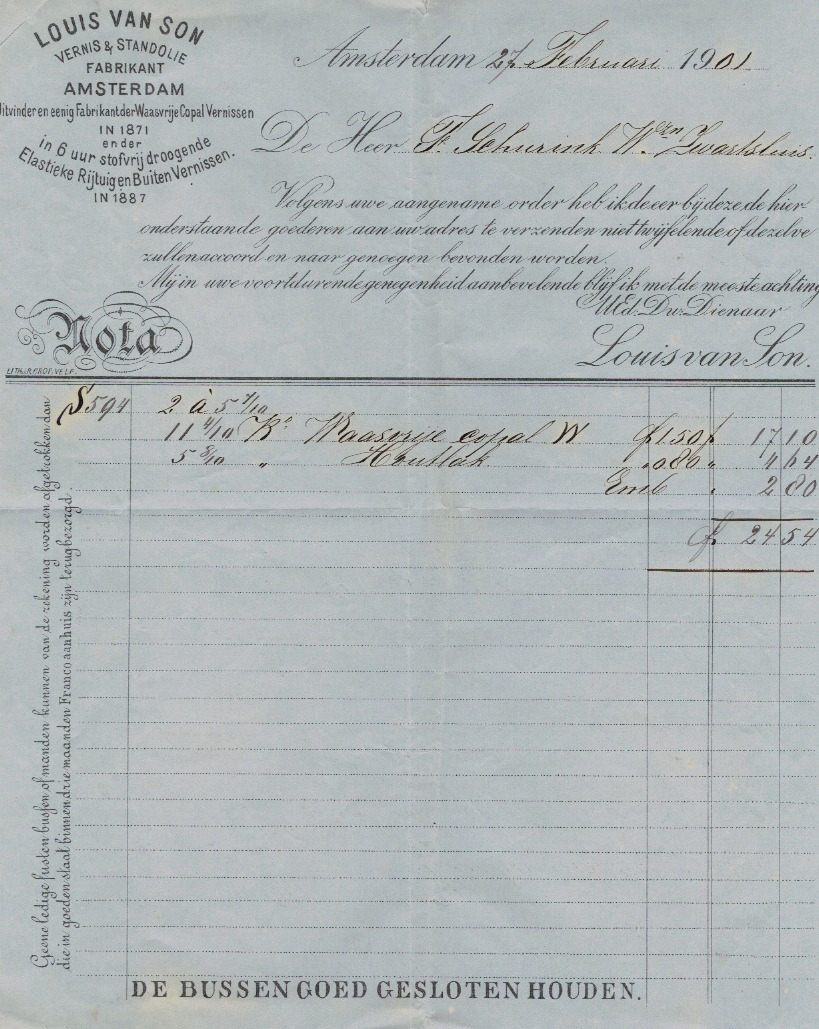 LOUIS VAN SON
VERNIS & STANDOLIE
FABRIKANT
AMSTERDAM
Uitvinder en eenig Fabrikant der Waasvrije Copal Vernissen
IN 1871
en der
in 6 uur stofvrij droogende
Elastieke Rijtuig en Buiten Vernissen.
IN 1887
Amsterdam 27 Februari 1901
De Heer F. Schurink Wzn Zwartsluis.
Volgens uwe aangename order heb ik de eer bij deze de hier
onderstaande goederen aan uw adres te verzenden niet twijfelende of dezelve
zullen accoord en naar genoegen bevonden worden.
Mij in uwe voortdurende genegenheid aanbevelende blijf ik met de meeste achting
UEd. Dw. Dienaar
Louis van Son.
Nota
S 594 2 à 5 7/10
11 4/10 Ko Waasvrije copal W f 1.50 f 17 10
5 8/10 " Houtlak " 0 80 " 4 64
Emb " 2 80
f 24 54
Geene ledige fusten bussen of manden kunnen van de rekening worden afgetrokken dan
die in goeden staat binnen drie maanden Franco aan huis zijn terugbezorgd.
DE BUSSEN GOED GESLOTEN HOUDEN.